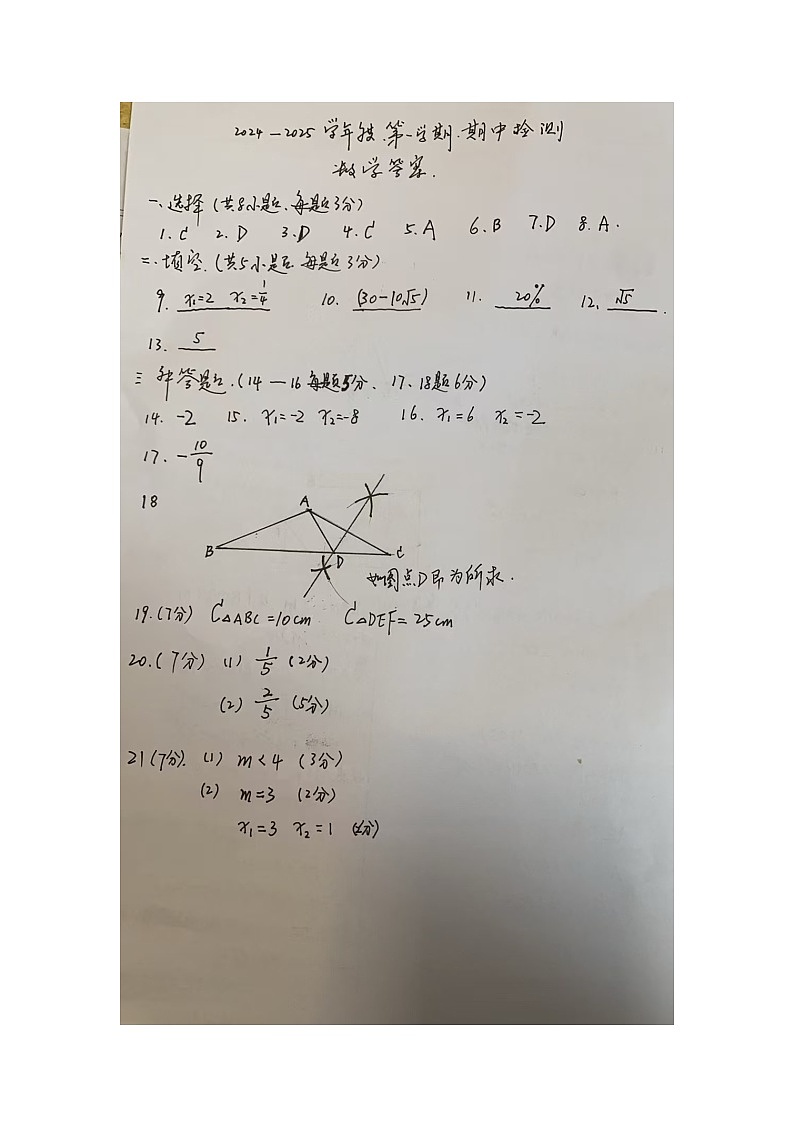 2024—2025 学年度 第一学期 期中检测
数学答案.
一、选择 (共8小题、每题3分)
1. C 2. D 3. D 4. C 5. A 6. B 7. D 8. A.
二、填空.(共5小题 每题3分)
9. x₁=2 x₂=1/4 10. (30-10√5) 11. 20% 12. √5.
13. 5
三 解答题.(14—16每题5分、17、18题6分)
14. -2 15. x₁=-2 x₂=-8 16. x₁=6 x₂=-2
17. -10/9
18
A
B D C
如图点D即为所求.
19.(7分) C△ABC=10cm C△DEF=25cm
20.(7分) (1) 1/5 (2分)
(2) 2/5 (5分)
21(7分). (1) m<4 (3分)
(2) m=3 (2分)
x₁=3 x₂=1 (2分)